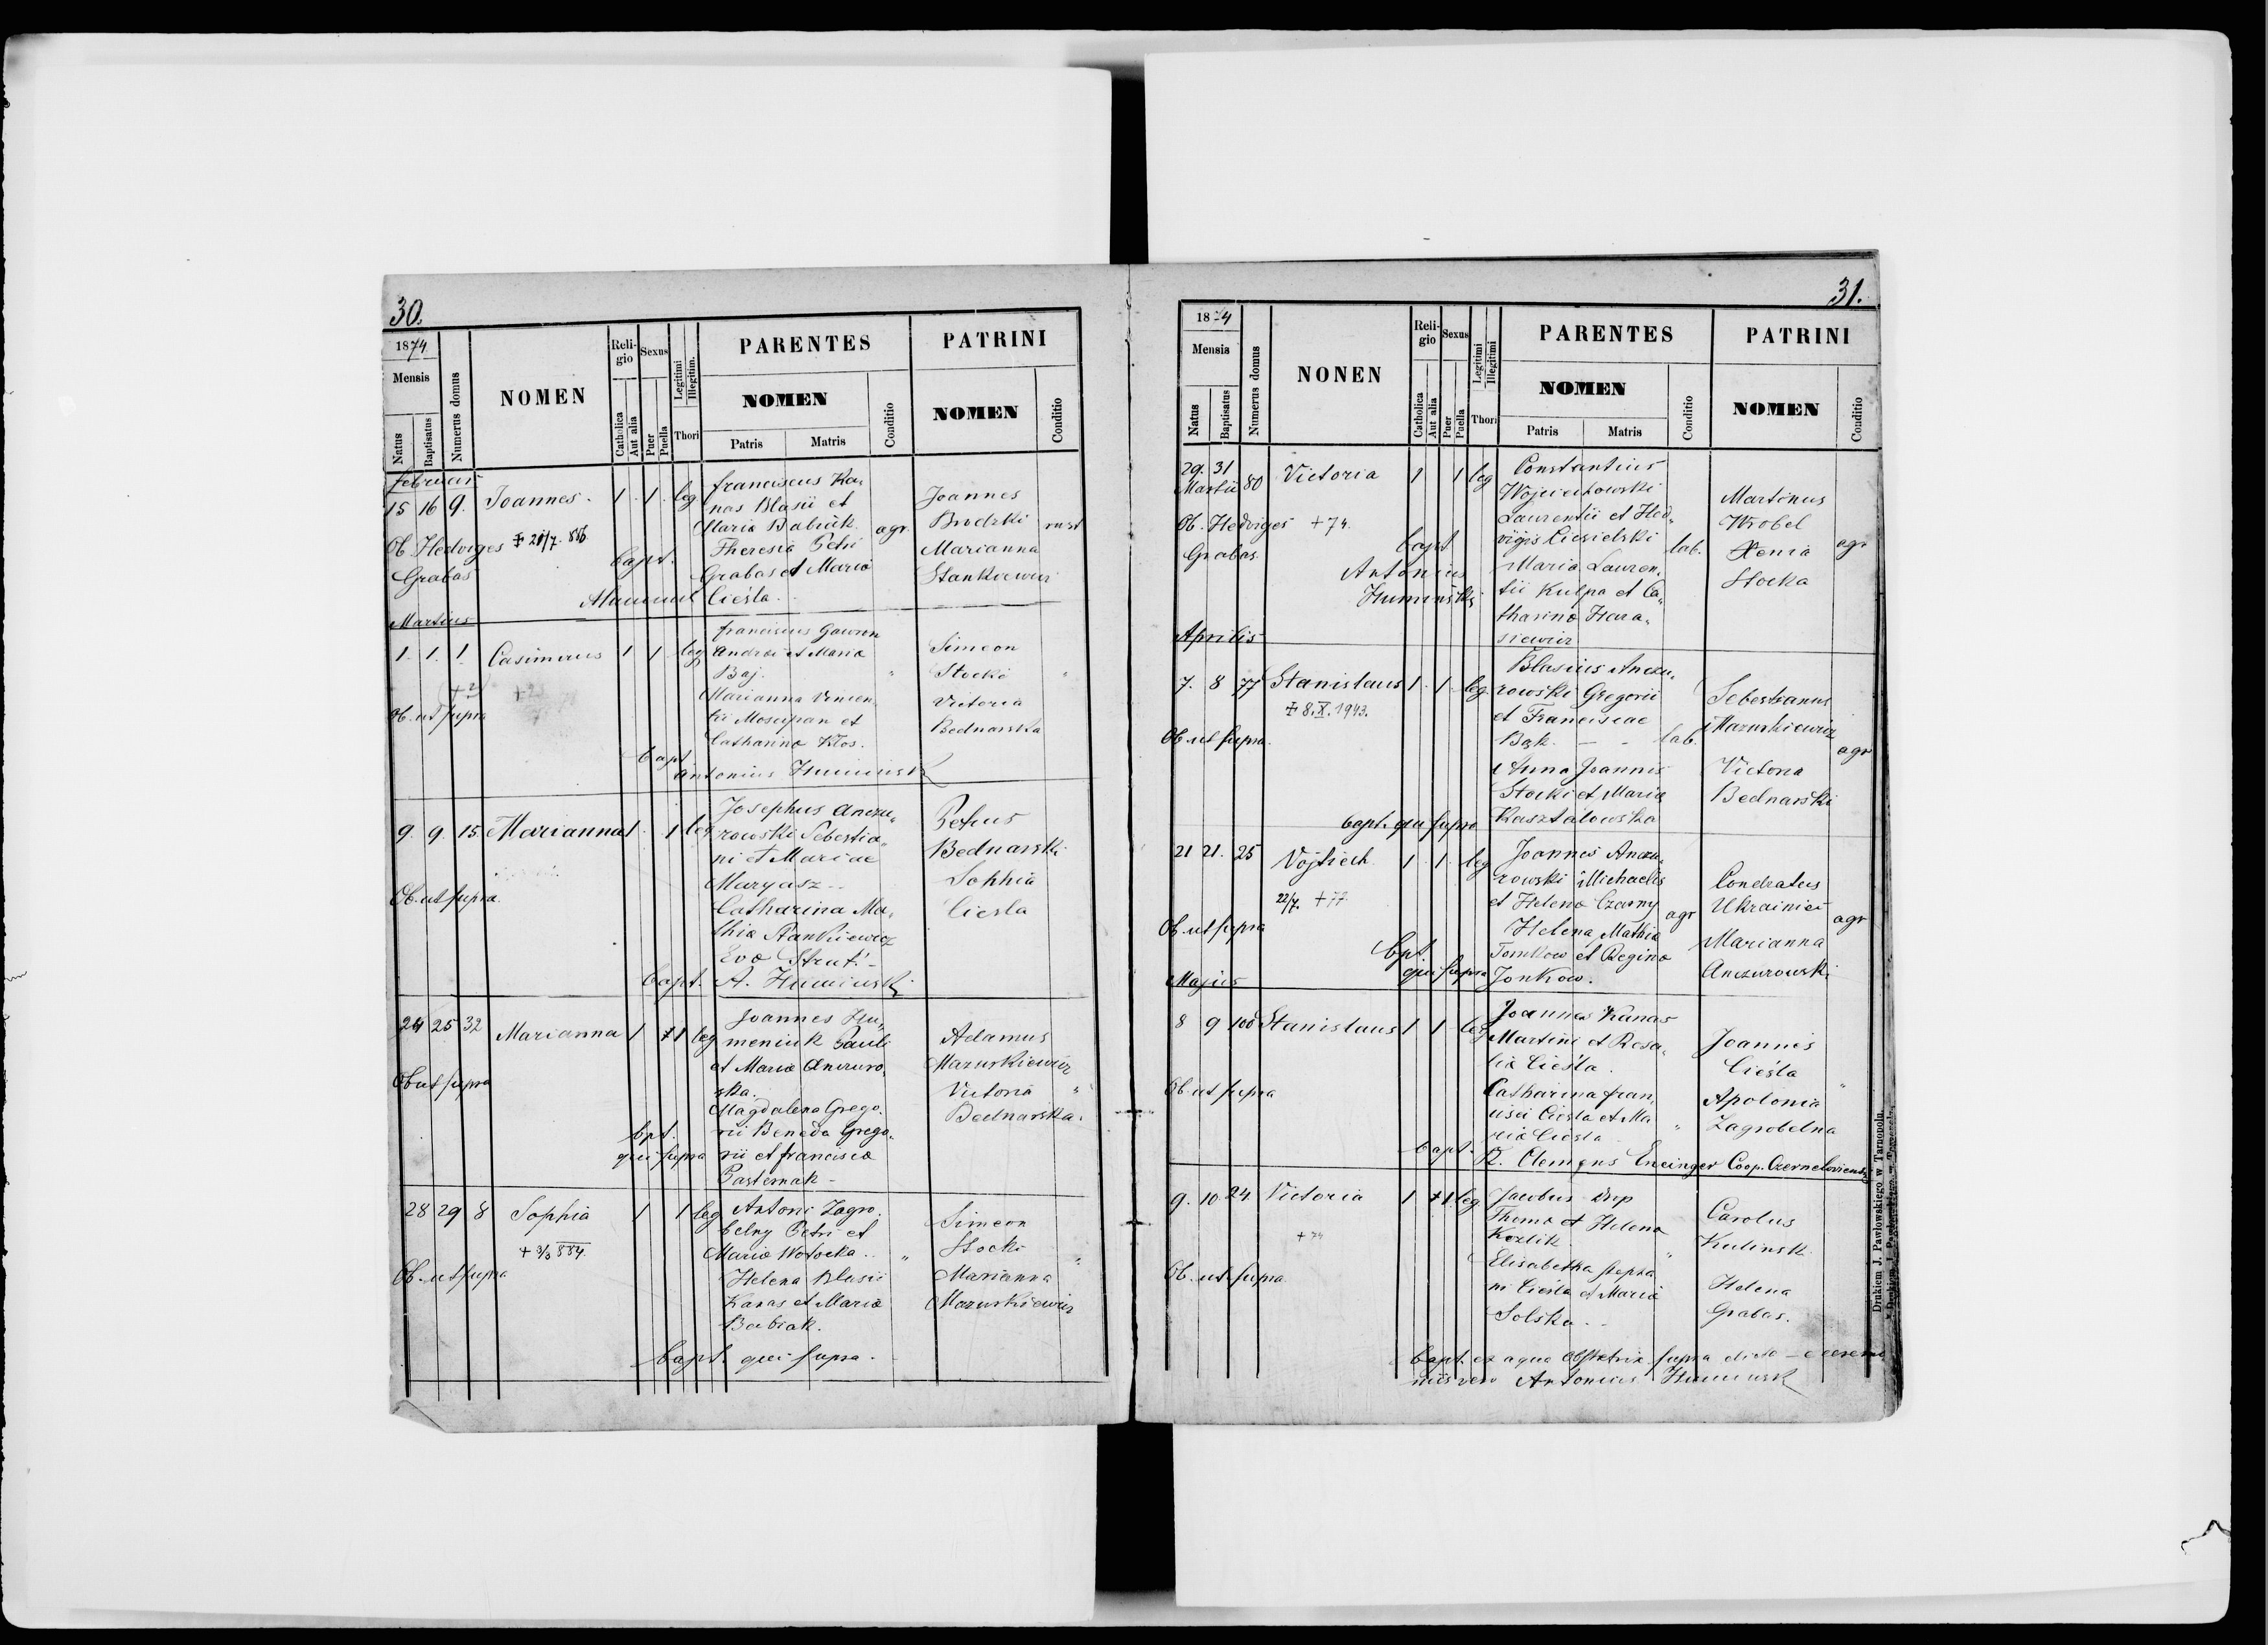 30.
1874
Mensis
Natus
Baptisatus
Numerus domus
NOMEN
Religio
Catholica
Aut alia
Sexus
Puer
Puella
Legitimi
Illegitim.
Thori
PARENTES
NOMEN
Patris
Matris
Conditio
PATRINI
NOMEN
Conditio
Februar
15 16 9. Joannes. 1 1 leg
Ob. Hedviges
Grabas
bapt.
franciscus Ka,
nas Blasii et
Maria Babiak agr.
Theresia Petri
Grabas et Maria
Cieśla
Joannes
Brodzki rust
Marianna
Stankiewicz
Martius
1. 1. 1. Casimirus 1 1 leg
Ob. ut supra
franciscus Gawron
Andrea et Maria
Baj. "
Marianna Vincen
tii Moscipan et
Catharina Kłos.
bapt
Antonius Huminsk
Simeon
Stocki "
Victoria
Bednarska
9. 9. 15. Marianna 1 1 leg
Ob. ut supra.
Josephus Anczu,
rowski Sebestia,
ni et Mariae
Maryasz
Catharina Ma,
thia Stankiewicz
Eva
bapt. A. Huminski
Petrus
Bednarski
Sophia
Ciesla
24 25 32 Marianna 1 1 leg
Ob ut supra
Joannes Hu,
meniuk Pauli
et Maria Anczuro,
ska.
Magdalena Grego.
rii Beneda Grego,
rii et francisca
Pasternak -
bpt.
qui supra
Adamus
Mazurkiewicz
Victoria "
Bednarska.
28 29 8 Sophia 1 1 leg
Ob. ut supra
Antoni Zagro.
belny Petri et
Maria Wołocka.. "
Helena Blasii
Kanas et Maria
Babiak.
bapt. qui supra.
Simeon
Stocki "
Marianna
Mazurkiewicz
31.
1874
Mensis
Natus
Baptisatus
Numerus domus
NONEN
Religio
Catholica
Aut alia
Sexus
Puer
Puella
Legitimi
Illegitimi
Thori
PARENTES
NOMEN
Patris
Matris
Conditio
PATRINI
NOMEN
Conditio
29. 31 80 Victoria 1 1 leg
Martii
Ob. Hedviges + 74.
Grabas
bapt
Antonius
Humiński
Constantius
Wojciechowski
Laurentii et Hed,
vigis Ciesielski lab.
Maria Lauren,
tii Kulpa et Ca,
tharina Hara,
siewicz
Martinus
Wrobel
Xenia agr
Stocka
Aprilis
7. 8 77 Stanislaus 1. 1. leg.
+ 8. X. 1943.
Ob. ut supra.
Blasius Anczu,
rowski Gregorii
et Franciscae
Bąk. - - lab.
Anna Joannis
Stocki et Maria
Kasztalowska
bapt. qui supra
Sebestianus
Mazurkiewicz
agr
Victoria
Bednarski
21 21. 25 Vojtiech 1 1 leg
22/7. + 77
Ob. ut supra
Joannes Anczu,
rowski Michaelis
et Helena Czarny
agr
Helena Mathia
Tomkow et Regina
Jonkow.
bpt.
qui supra
Condratus
Ukrainiec agr
Marianna
Anczurowski
Majus
8 9 100 Stanislaus 1 1 leg
Ob. ut supra
Joannes Kanas
Martini et Rosa,
lia Cieśla.
Catharina fran,
cisci Ciesla et Ma "
ria Ciesla
bapt. R. Clemens Encinger Coop.
Joannes
Cieśla "
Apolonia
Zagrobelna
9. 10 24. Victoria 1 1 leg
+ 74
Ob. ut supra.
Jacobus
Thoma et Helena
Kozlik "
Elisabetha Stepha
ni Cieśla et Maria
Solska..
bapt. ex aqua obstetrix supra dicta
niis vero Antonius Huminsk
Carolus
Kulinsk.
Helena
Grabas.
Drukiem J. Pawłowskiego w Tarnopolu.